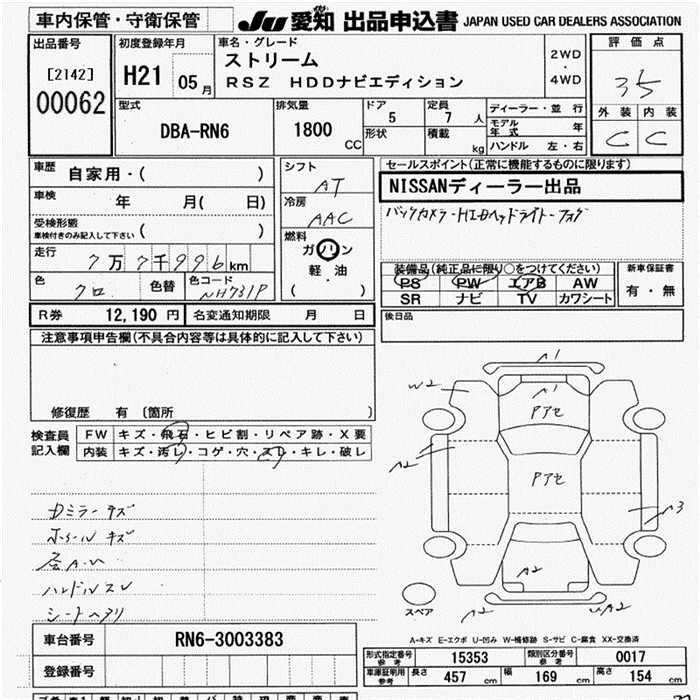 車内保管・守衛保管
JU 愛知 出品申込書 JAPAN USED CAR DEALERS ASSOCIATION
出品番号
[2142]
00062
初度登録年月
H21 05月
車名・グレード
ストリーム
RSZ HDDナビエディション
2WD
・
4WD
評価点
3.5
外装 内装
C C
型式
DBA-RN6
排気量
1800 CC
ドア 5
形状
定員 7 人
積載 kg
ディーラー・並行
モデル年式 年
ハンドル 左・右
車歴 自家用・( )
車検 年 月( 日)
受検形態
車検付きのみ記入して下さい ( )
走行 7万7千996km
色 クロ 色替 色コード NH731P
シフト AT
冷房 AAC
燃料
ガソリン
軽・油
( ・ )
セールスポイント(正常に機能するものに限ります)
NISSANディーラー出品
バックカメラ・HIDヘッドライト・フォグ
装備品(純正品に限り○をつけてください)
PS PW エアB AW
SR ナビ TV カワシート
新車保証書
有・無
R券 12,190円 名変通知期限 月 日
後日品
注意事項申告欄(不具合内容等は具体的に記入して下さい)
修復歴 有 〔箇所 〕
検査員記入欄
FW キズ・飛石・ヒビ割・リペア跡・X要
内装 キズ・汚レ・コゲ・穴・スレ・キレ・破レ
Dミラーキズ
ホールキズ
ハンドルスレ
シートヘタリ
A1
W2
A1
Pアセ
A2
Pアセ
A3
A2
A2
UA2
スペア
A-キズ E-エクボ U-凹み W-補修跡 S-サビ C-腐食 XX-交換済
車台番号 RN6-3003383
登録番号
形式指定番号 参考 15353 類別区分番号 参考 0017
車庫証明用 参考 長さ 457 cm 幅 169 cm 高さ 154 cm